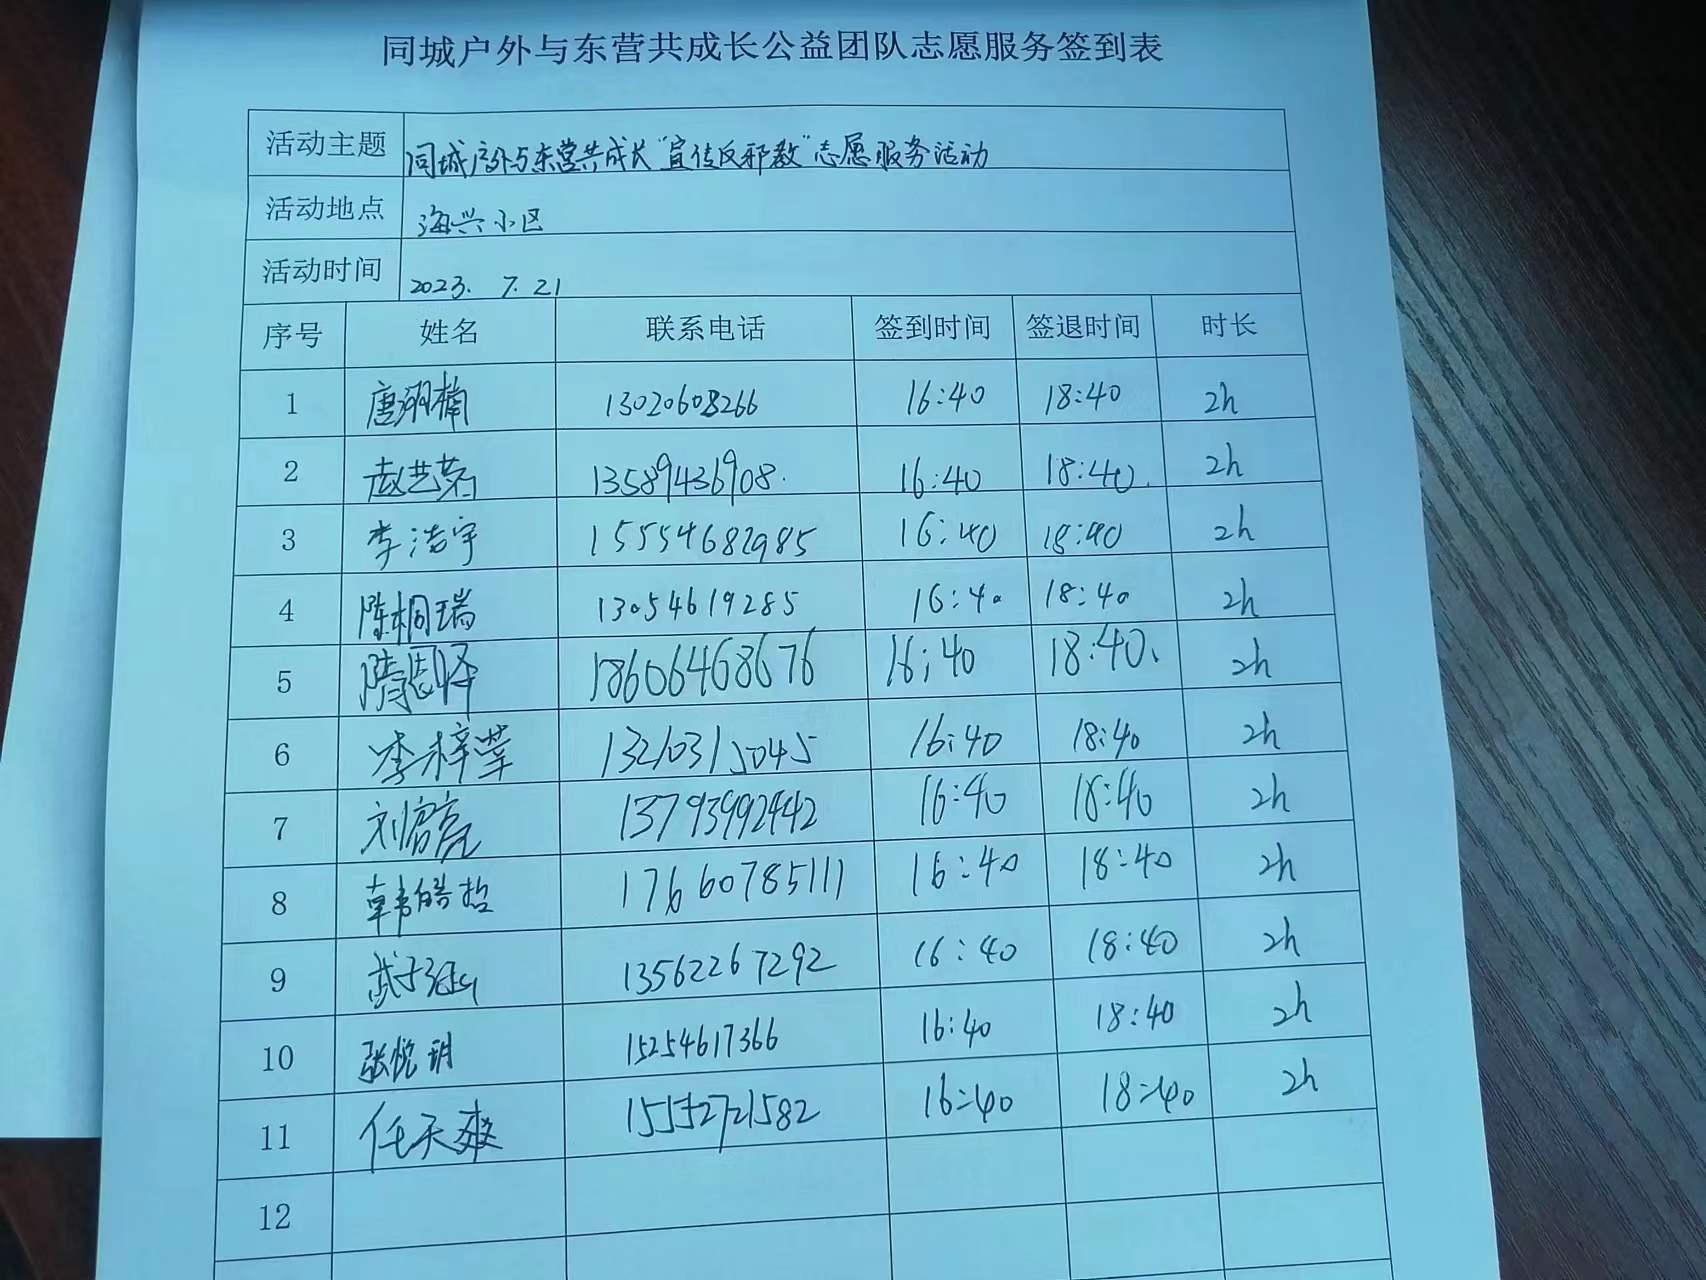 同城户外与东营共成长公益团队志愿服务签到表
活动主题 同城户外与东营共成长“宣传反邪教”志愿服务活动
活动地点 海兴小区
活动时间 2023. 7. 21
序号 姓名 联系电话 签到时间 签退时间 时长
1 唐翊楠 13020608266 16:40 18:40 2h
2 赵艺菊 13589436908. 16:40 18:40. 2h
3 李浩宇 15554682985 16:40 18:40 2h
4 陈桐瑞 13054619285 16:40 18:40 2h
5 隋思泽 18606468676 16:40 18:40、 2h
6 李梓莘 13210315045 16:40 18:40 2h
7 刘宥亮 13793992442 16:40 18:40 2h
8 韩皓哲 17660785111 16:40 18:40 2h
9 武子涵 13562267292 16:40 18:40 2h
10 张悦玥 15254617366 16:40 18:40 2h
11 任天爽 15152721582 16:40 18:40 2h
12